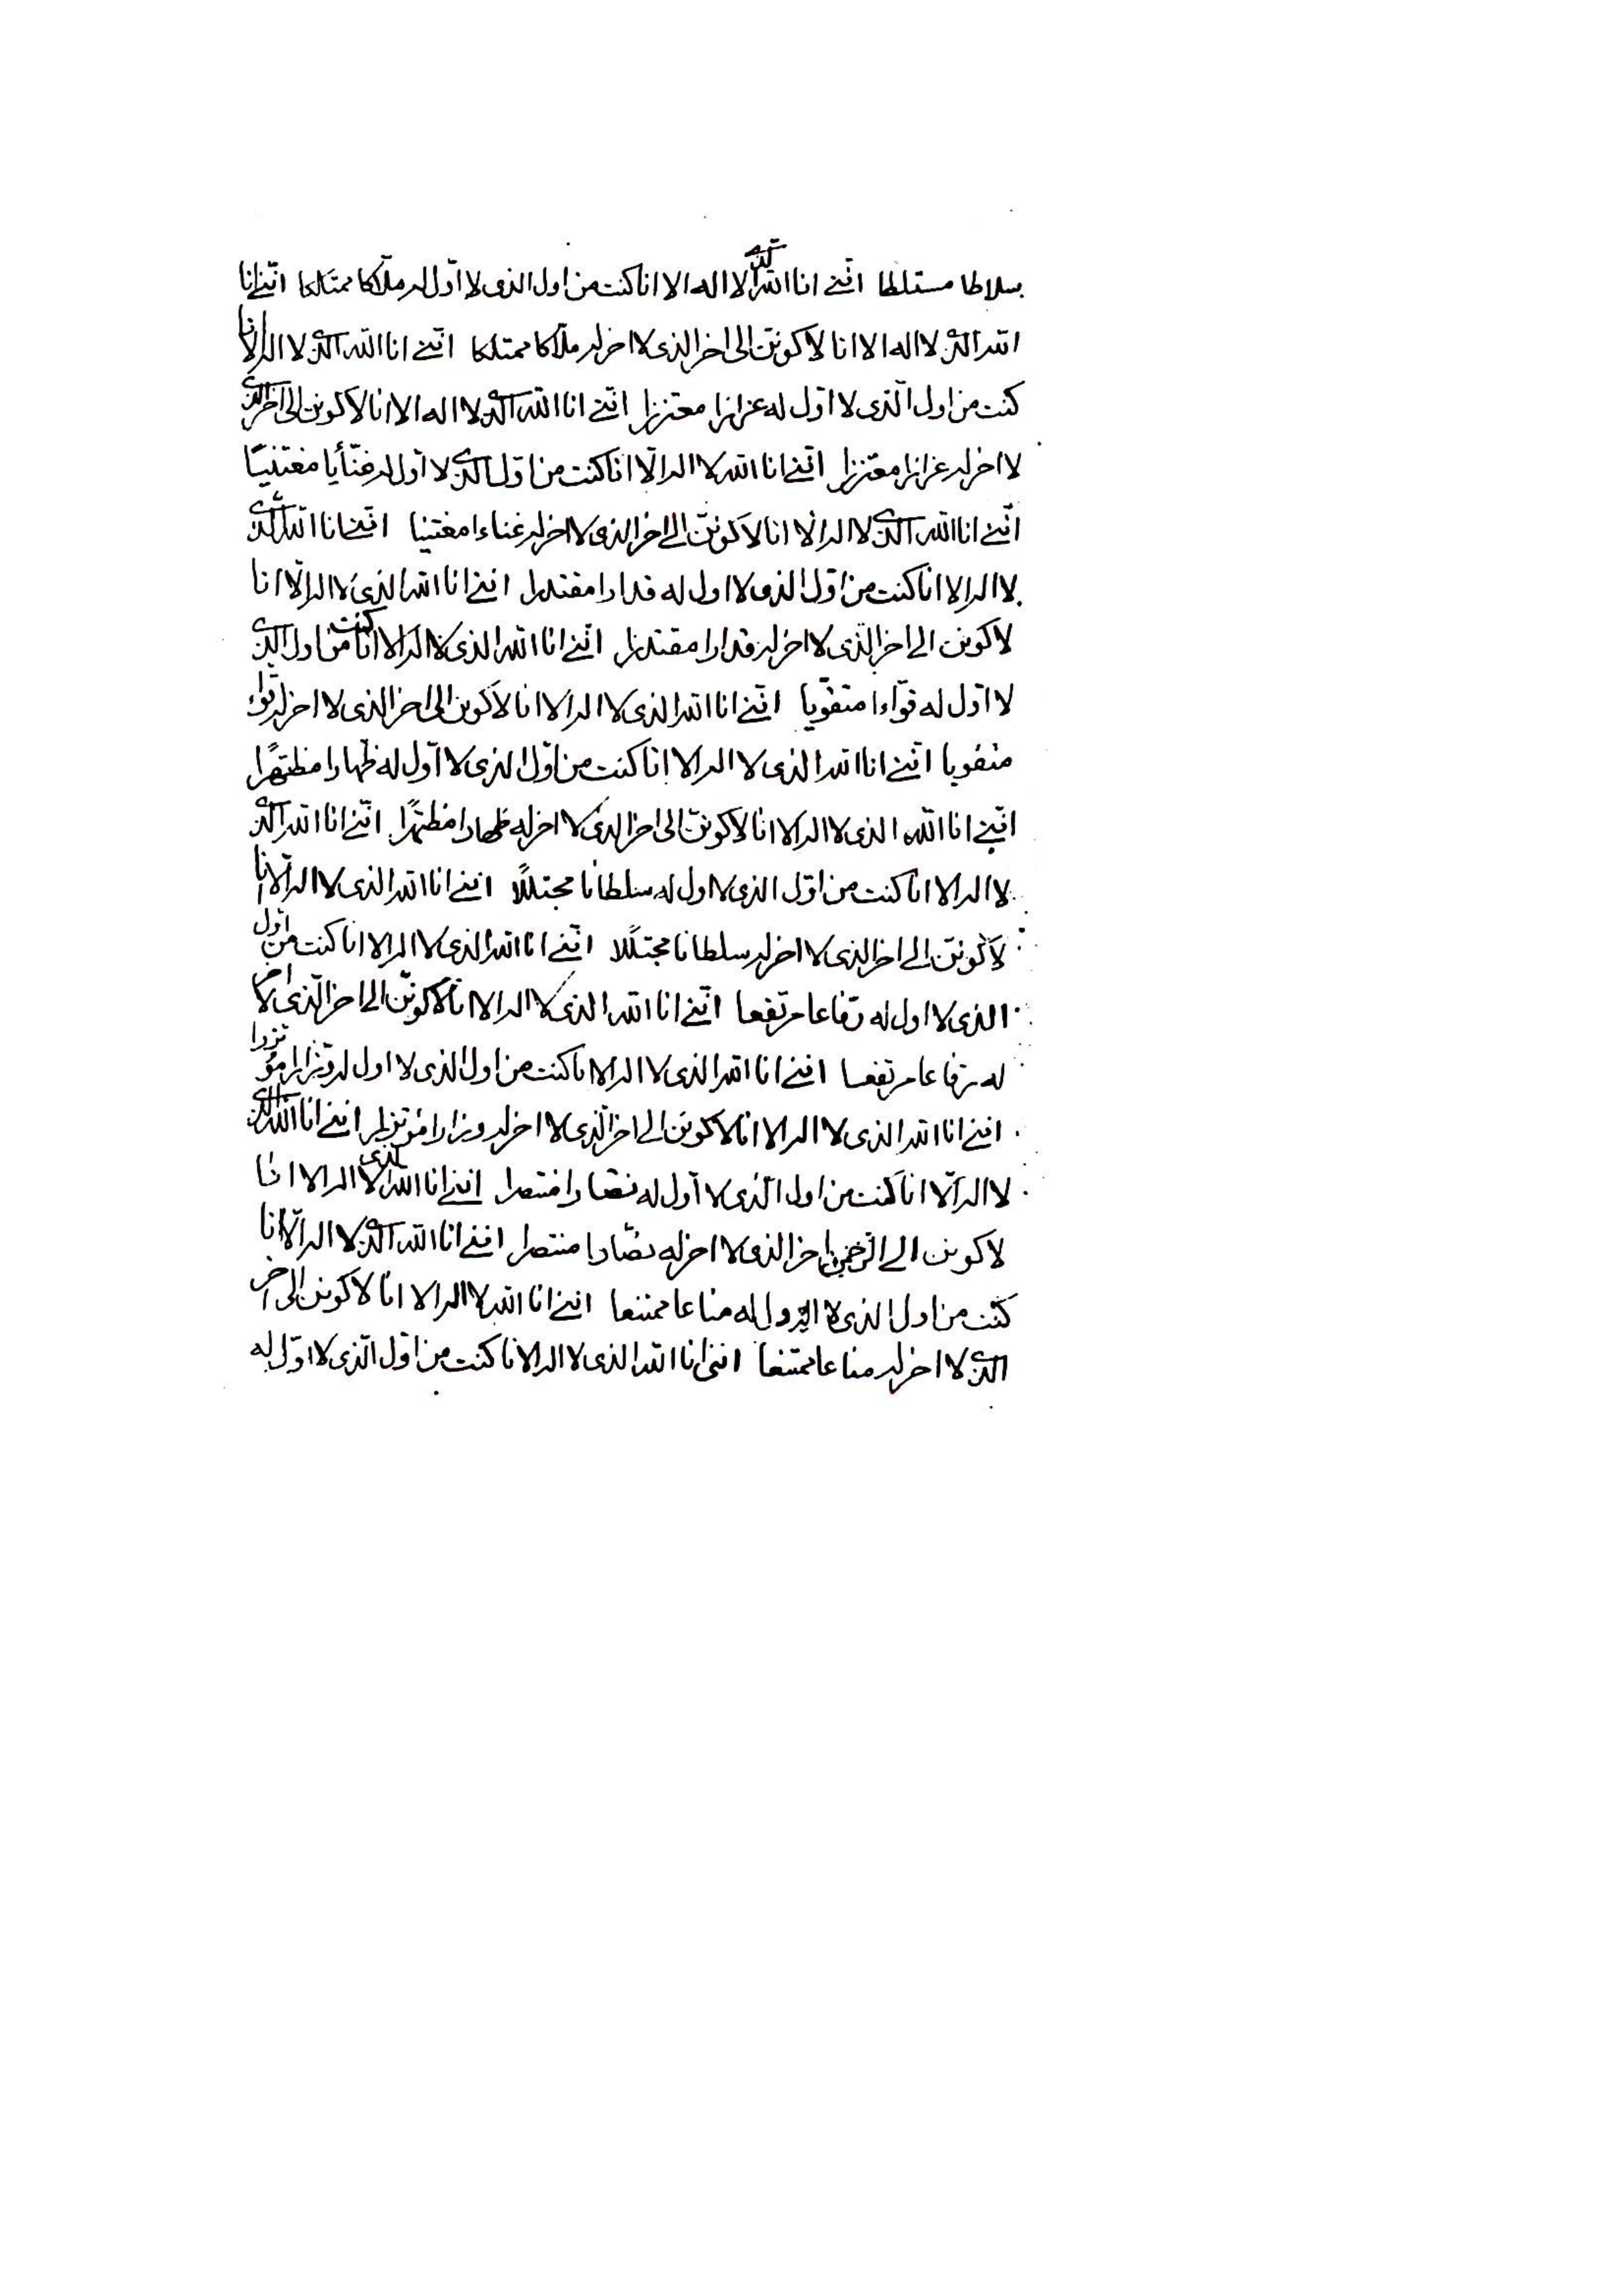 سلاطا مستلطا اننی انا الله الذی لا اله الا انا کنت من اول الذی لا اول له ملاکا ممتلکا اننی انا
الله الذی لا اله الا انا لاکونن الی اخر الذی لا اخر له ملاکا ممتلکا اننی انا الله الذی لا اله الا انا
کنت من اول الذی لا اول له عزازا معتززا اننی انا الله الذی لا اله الا انا لاکونن الی اخر الذی
لا اخر له عزازا معتززا اننی انا الله لا اله الا انا کنت من اول الذی لا اول له غنأیا مغتنیا
اننی انا الله الذی لا اله الا انا لاکونن الی اخر الذی لا اخر له غناءا مغتنیا اننی انا الله الذی
لا اله الا انا کنت من اول الذی لا اول له قدارا مقتدرا اننی انا الله الذی لا اله الا انا
لاکونن الی اخر الذی لا اخر له قدارا مقتدرا اننی انا الله الذی لا اله الا انا کنت من اول الذی
لا اول له قواءا متقویا اننی انا الله الذی لا اله الا انا لاکونن الی اخر الذی لا اخر له قواء
متقویا اننی انا الله الذی لا اله الا انا کنت من اول الذی لا اول له ظهارا مظتهرا
اننی انا الله الذی لا اله الا انا لاکونن الی اخر الذی لا اخر له ظهارا مظتهرا اننی انا الله الذی
لا اله الا انا کنت من اول الذی لا اول له سلطانا مجتللا اننی انا الله الذی لا اله الا انا
لاکونن الی اخر الذی لا اخر له سلطانا مجتللا اننی انا الله الذی لا اله الا انا کنت من اول
الذی لا اول له رفاعا مرتفعا اننی انا الله الذی لا اله الا انا لاکونن الی اخر الذی لا اخر
له رفاعا مرتفعا اننی انا الله الذی لا اله الا انا کنت من اول الذی لا اول له وزارا موتزرا
اننی انا الله الذی لا اله الا انا لاکونن الی اخر الذی لا اخر له وزارا موتزرا اننی انا الله الذی
لا اله الا انا کنت من اول الذی لا اول له نصارا منتصرا اننی انا الله الذی لا اله الا انا
لاکونن الی اخر الذی لا اخر له نصارا منتصرا اننی انا الله الذی لا اله الا انا
کنت من اول الذی لا اول له مناعا ممتنعا اننی انا الله لا اله الا انا لاکونن الی اخر
الذی لا اخر له مناعا ممتنعا اننی انا الله الذی لا اله الا انا کنت من اول الذی لا اول له